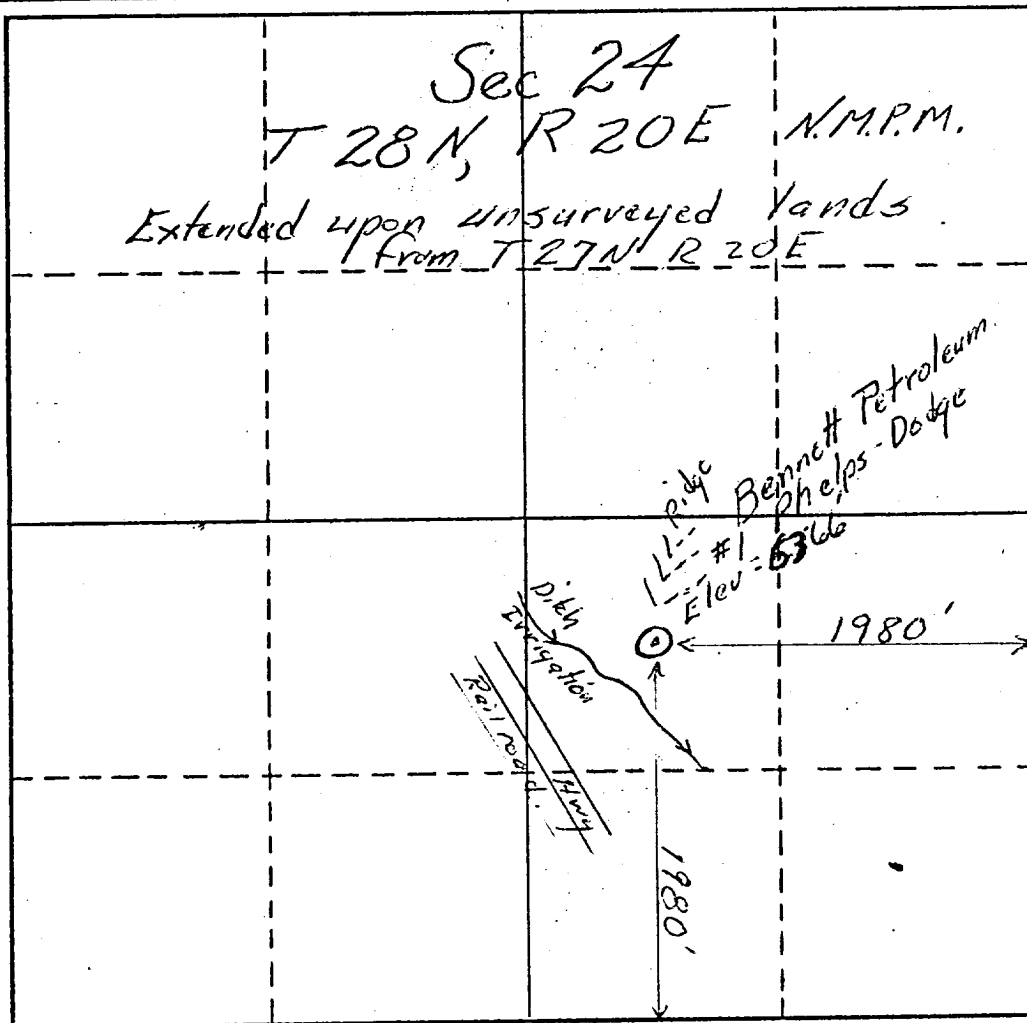 Sec 24
T 28 N, R 20 E N.M.P.M.
Extended upon unsurveyed lands
from T 27 N R 20 E
Ridge
Bennett Petroleum
#1 Phelps-Dodge
Elev =
1980'
Ditch
Irrigation
Railroad
Hwy
1980'